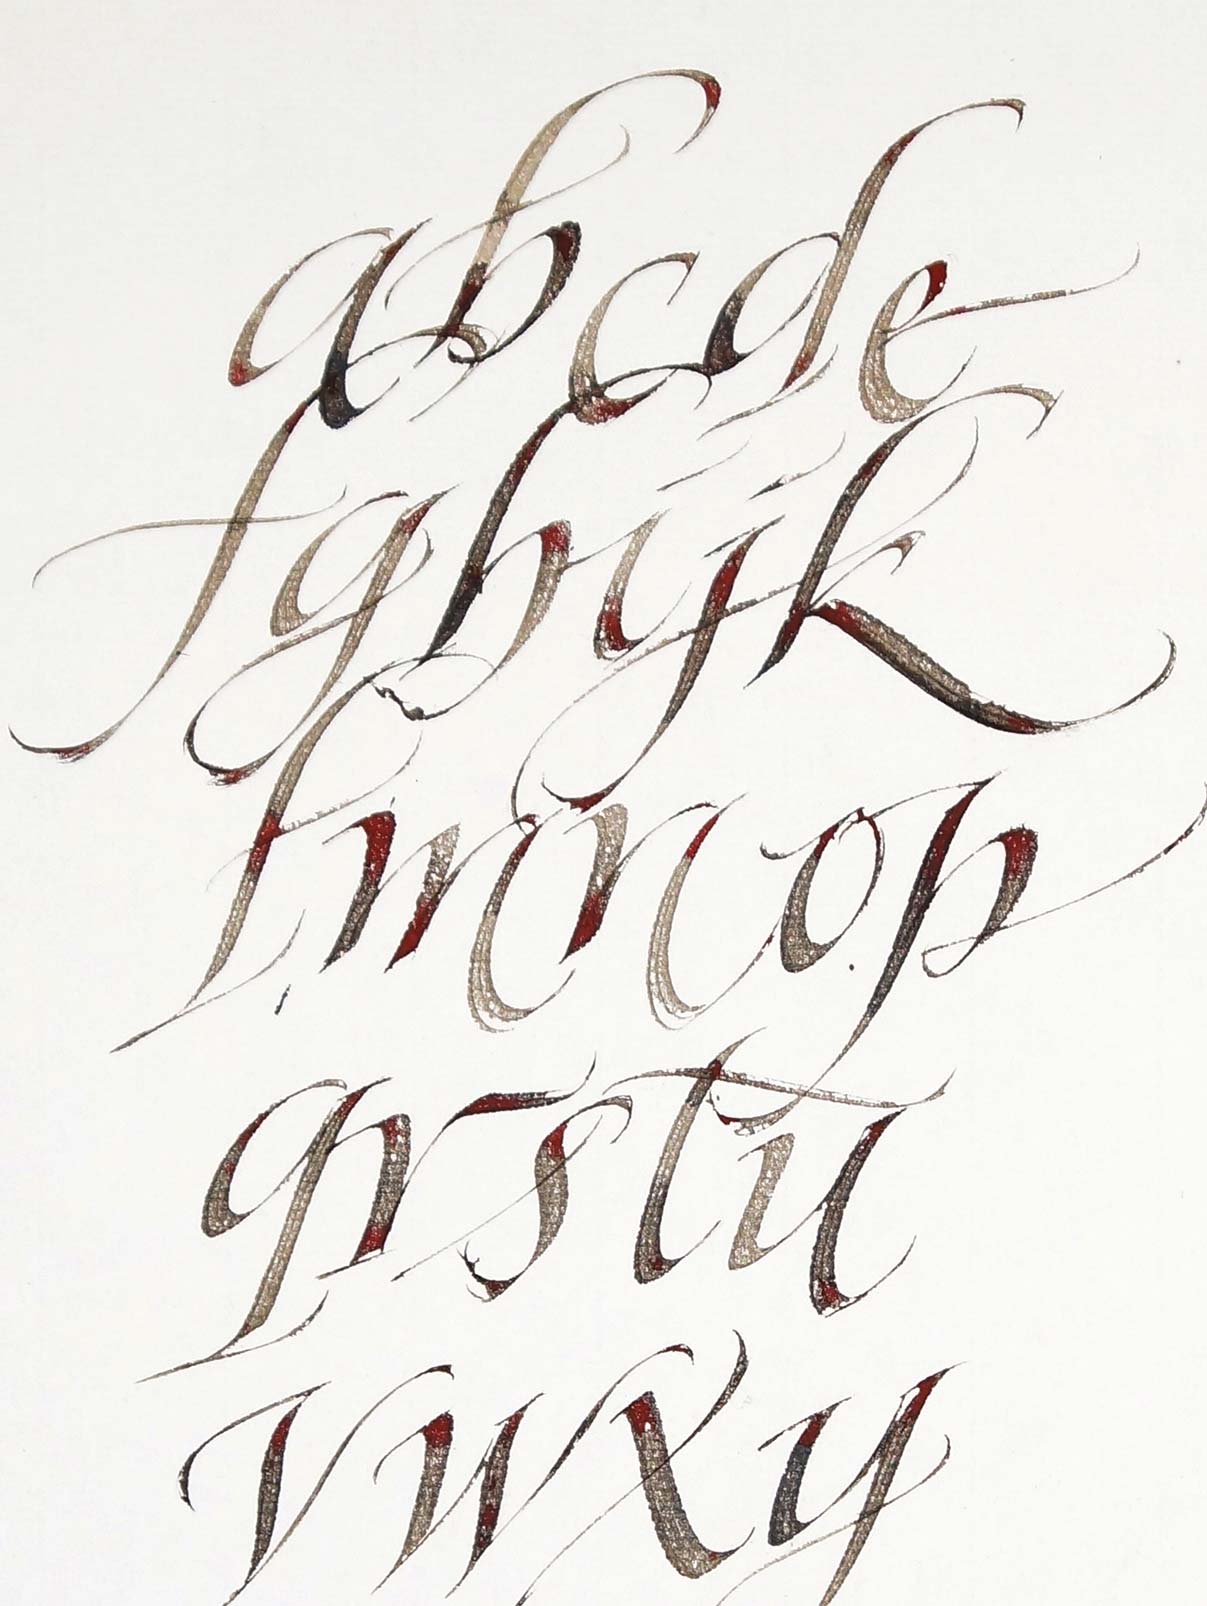 abcde
fghijk
lmnop
qrstu
vwxy